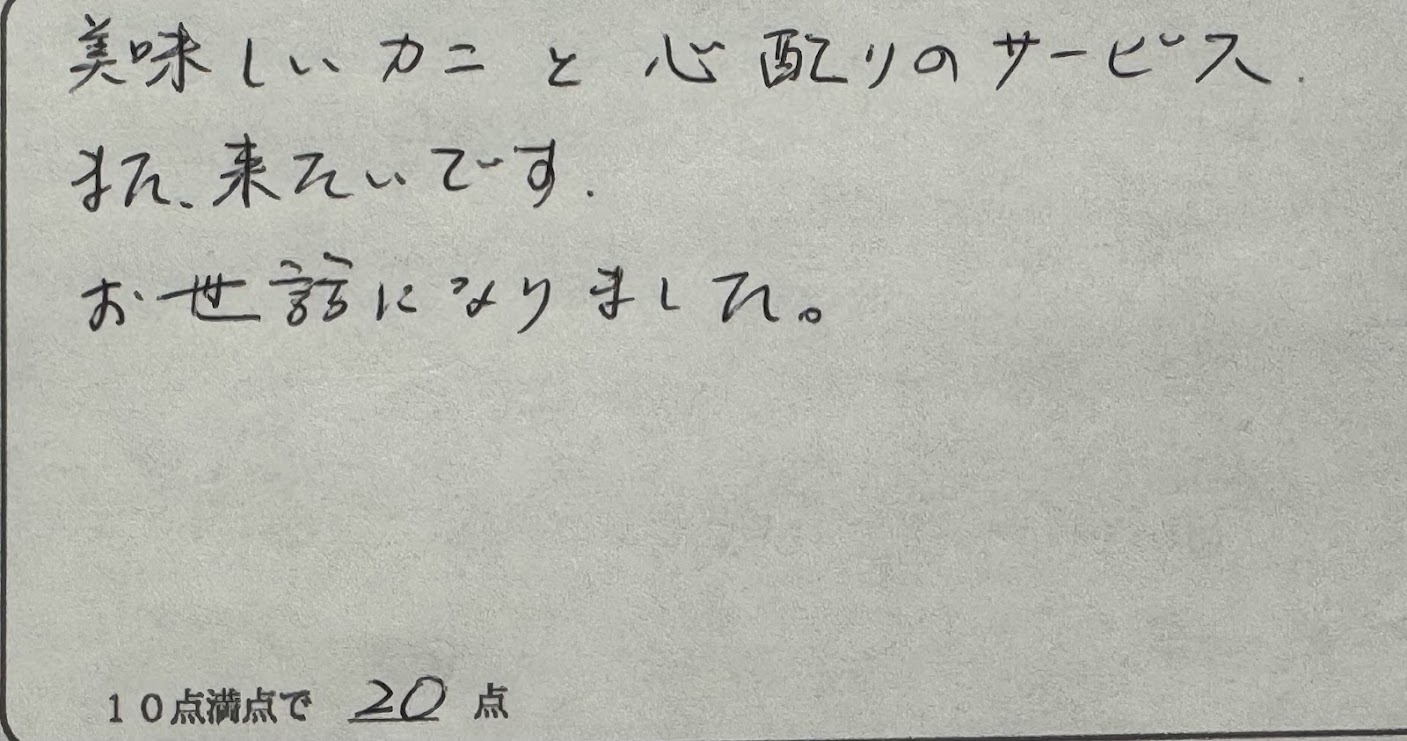 美味しいカニと心配りのサービス.
また、来たいです.
お世話になりました。
10点満点で 20 点